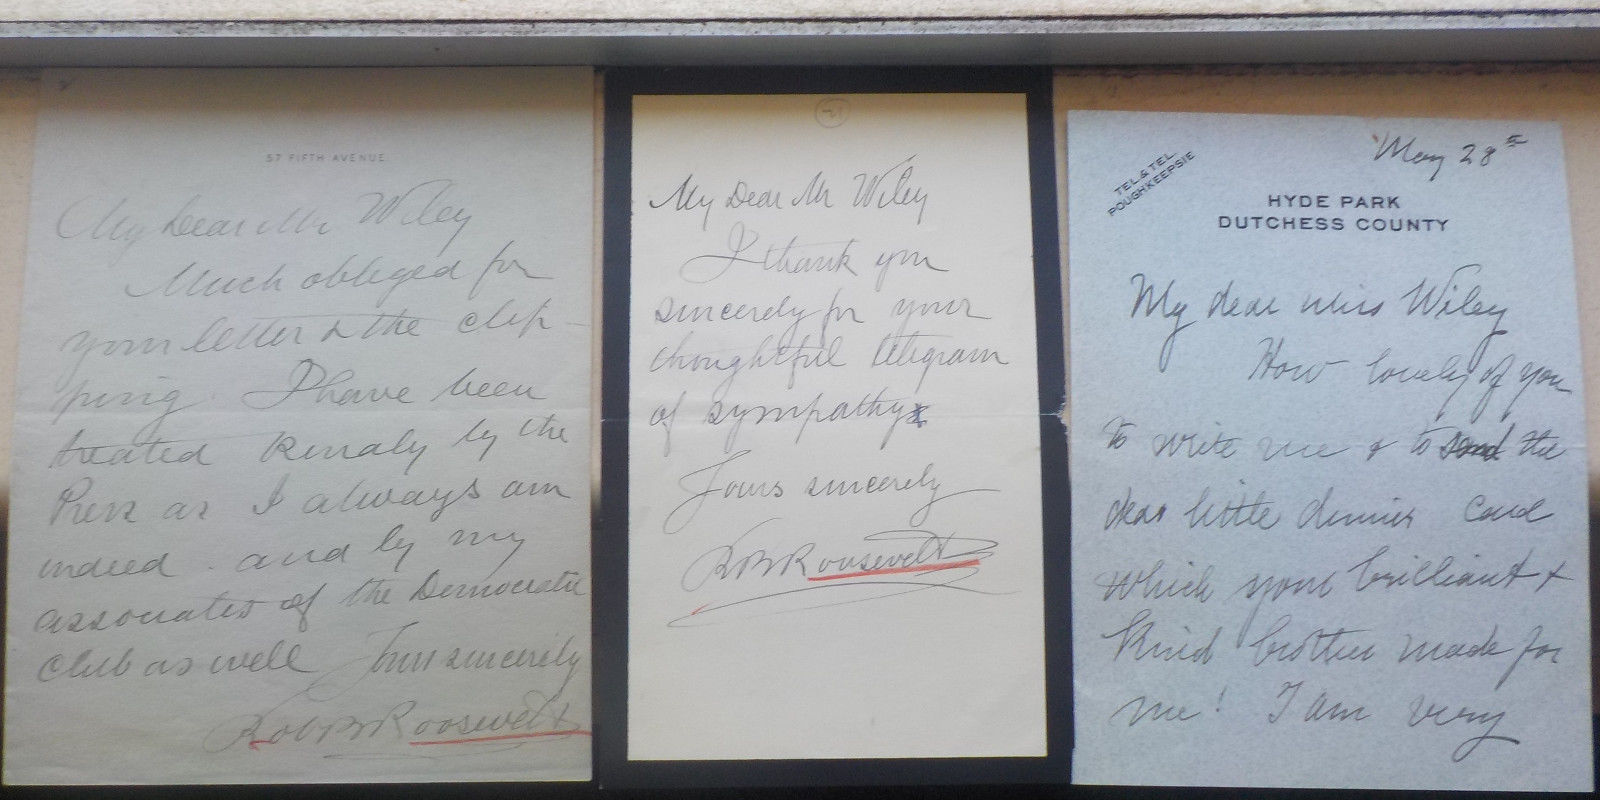 57 FIFTH AVENUE.
My Dear Mr Wiley
Much obliged for
your letter & the clip-
ping. I have been
treated kindly by the
Press as I always am
indeed. and by my
associates of the Democratic
Club as well Yours sincerely
Rob B Roosevelt
21
My Dear Mr Wiley
I thank you
sincerely for your
thoughtful telegram
of sympathy
Yours sincerely
Rob B Roosevelt
May 28th
TEL. & TEL.
POUGHKEEPSIE
HYDE PARK
DUTCHESS COUNTY
My dear Miss Wiley
How lovely of you
to write me & to send the
dear little dinner card
which your brilliant &
kind brother made for
me! I am very